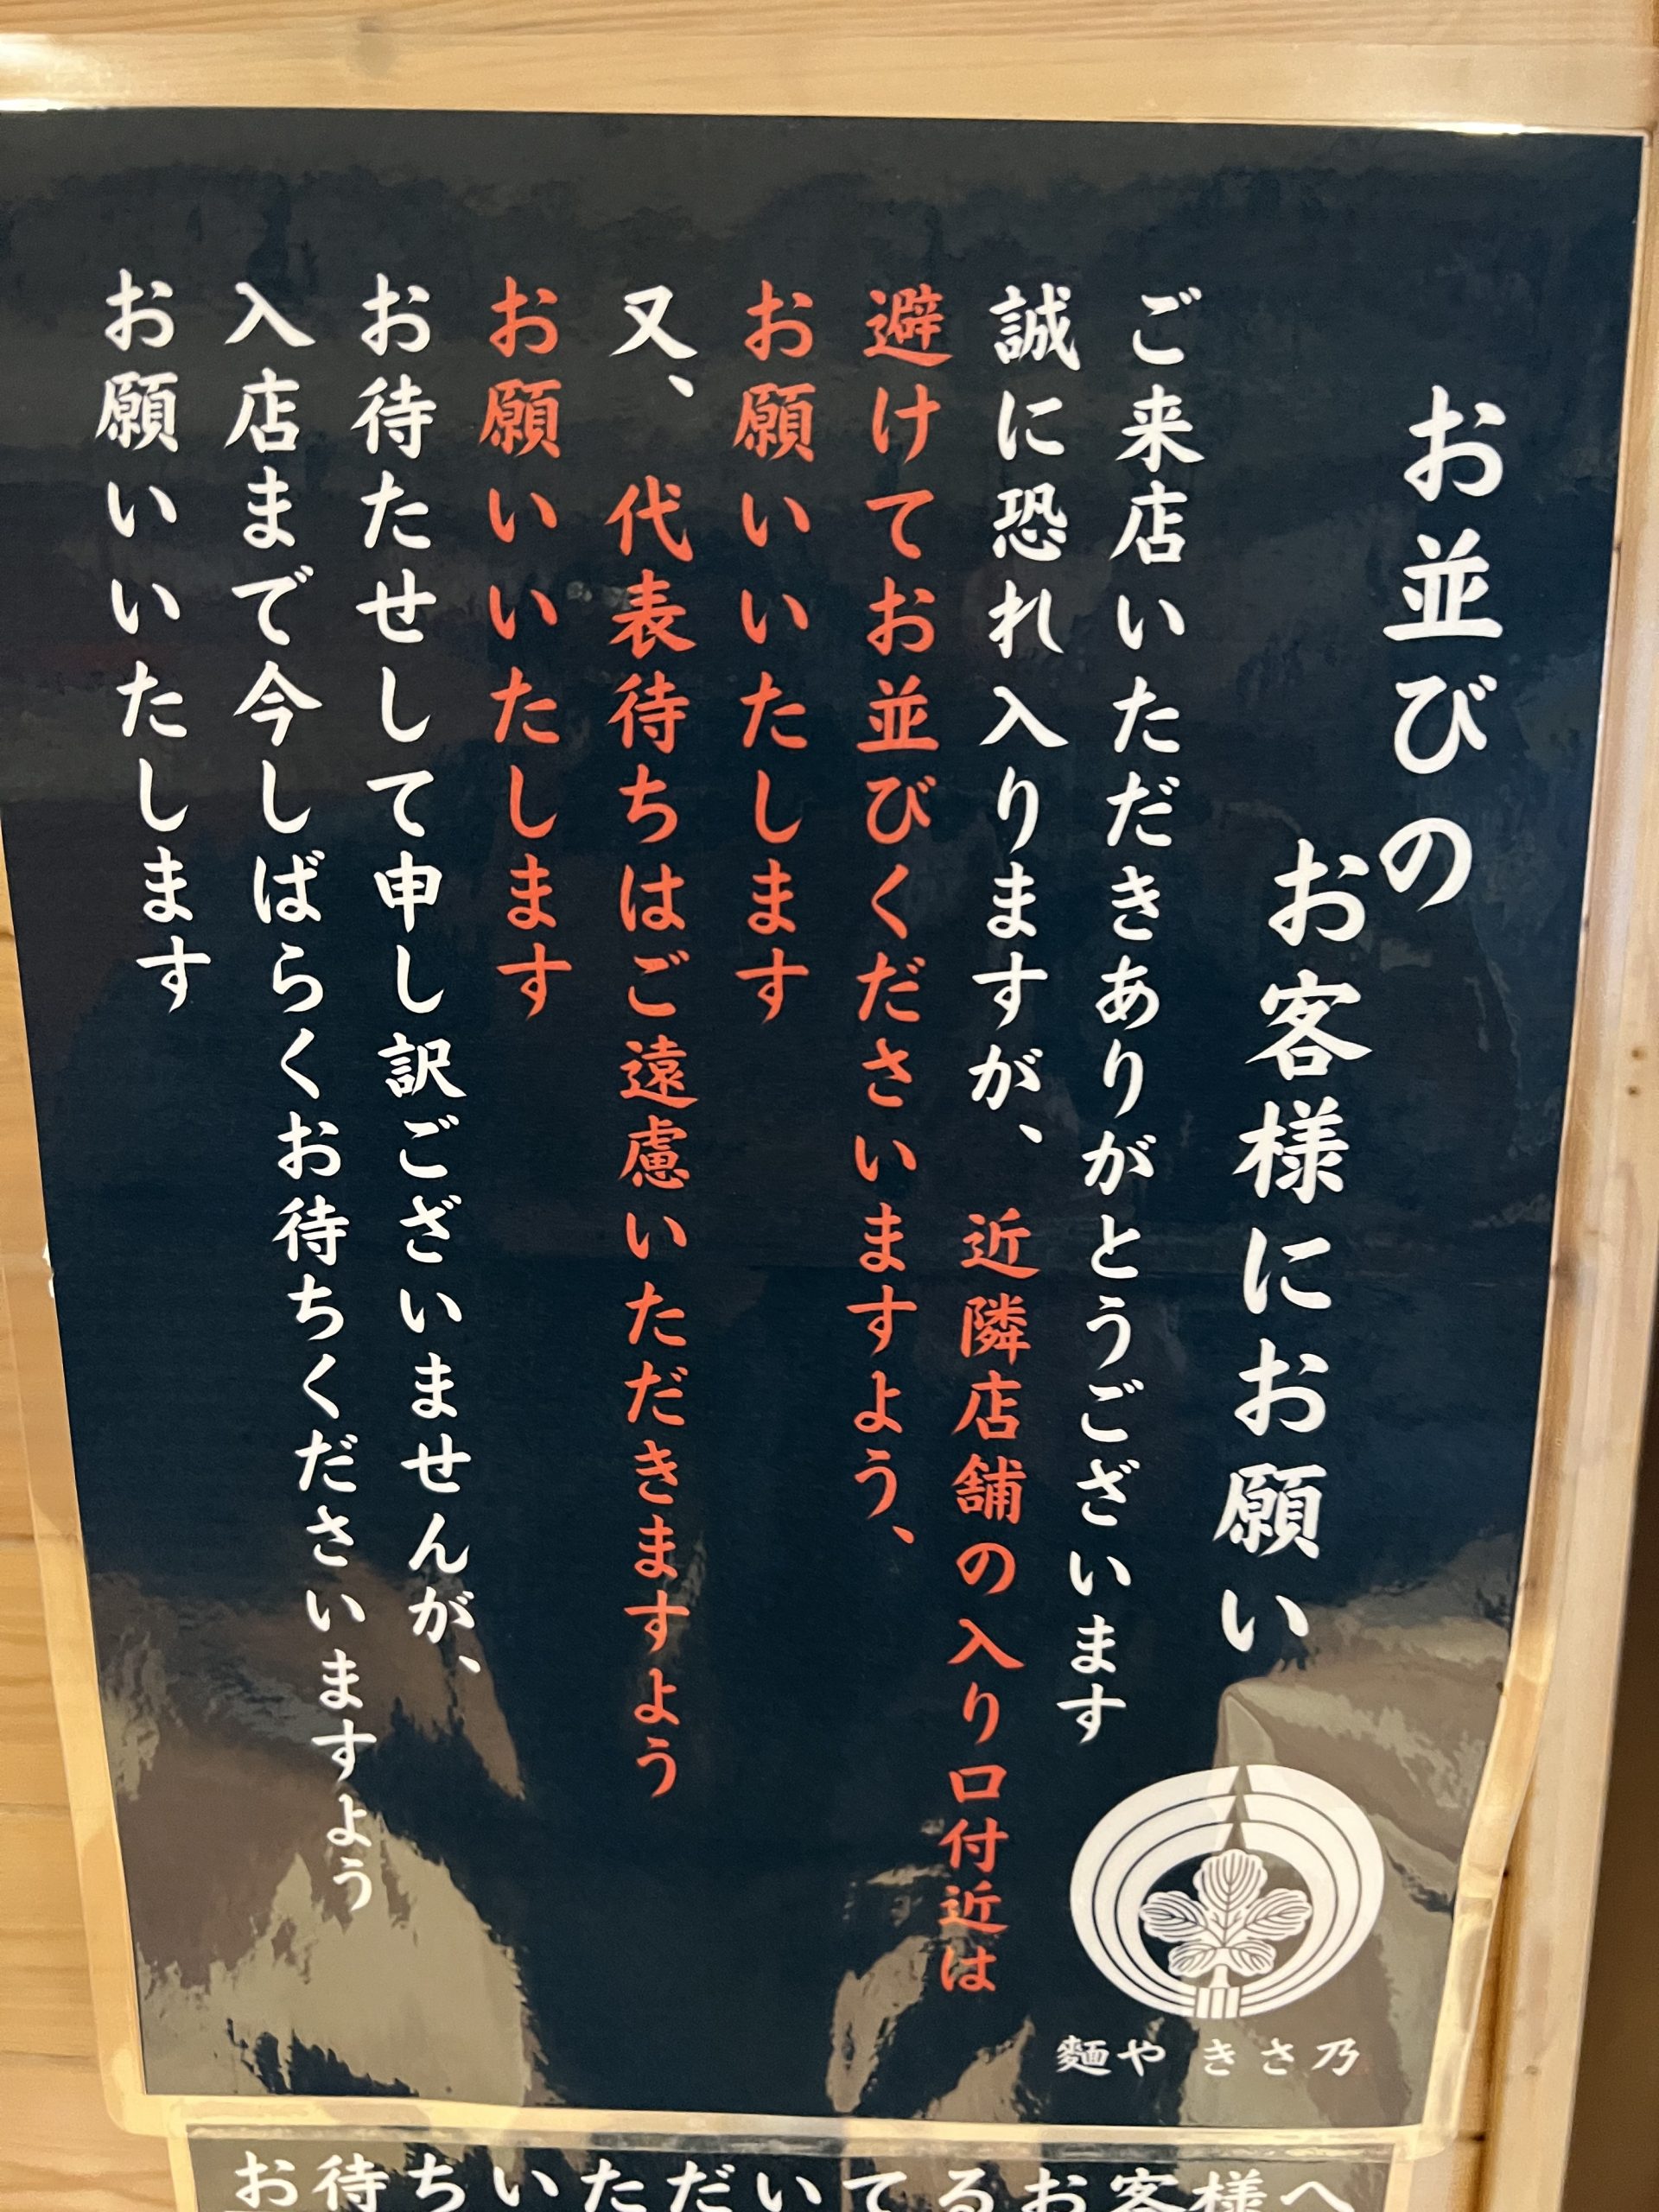 お並びの
お客様にお願い
ご来店いただきありがとうございます
誠に恐れ入りますが、近隣店舗の入り口付近は
避けてお並びくださいますよう、
お願いいたします
又、代表待ちはご遠慮いただきますよう
お願いいたします
お待たせして申し訳ございませんが、
入店まで今しばらくお待ちくださいますよう
お願いいたします
麺や きさ乃
お待ちいただいてるお客様へ